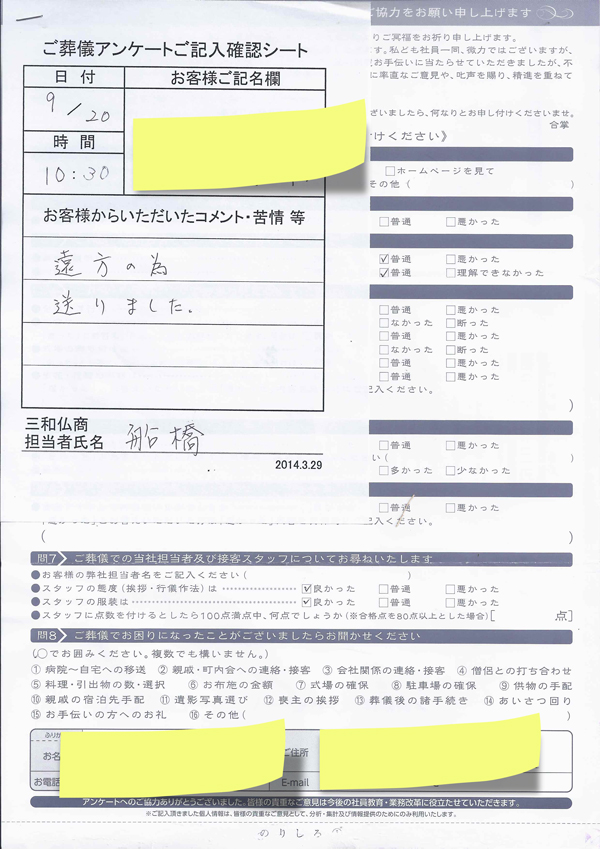 ご葬儀アンケートご記入確認シート
日付
お客様ご記名欄
9/20
時間
10:30
お客様からいただいたコメント・苦情 等
遠方の為
送りました.
三和仏商
担当者氏名 船橋
2014.3.29
ご協力をお願い申し上げます
りご冥福をお祈り申し上げます。
す。私ども社員一同、微力ではございますが、
お手伝いに当たらせていただきましたが、不
に率直なご意見や、叱声を賜り、精進を重ねて
ざいましたら、何なりとお申し付けくださいませ。
合掌
けください》
□ホームページを見て
その他（ ）
□普通 □悪かった
☑普通 □悪かった
☑普通 □理解できなかった
□普通 □悪かった
□なかった □断った
□普通 □悪かった
□なかった □断った
□普通 □悪かった
□普通 □悪かった
記入ください。
）
□普通 □悪かった
い（ ）
□多かった □少なかった
□普通 □悪かった
記入ください。
（ ）
問7 ご葬儀での当社担当者及び接客スタッフについてお尋ねいたします
●お客様の弊社担当者名をご記入ください（ ）
●スタッフの態度（挨拶・行儀作法）は ☑良かった □普通 □悪かった
●スタッフの服装は ☑良かった □普通 □悪かった
●スタッフに点数を付けるとしたら100点満点中、何点でしょうか（※合格点を80点以上とした場合）[ 点]
問8 ご葬儀でお困りになったことがございましたらお聞かせください
（○でお囲みください。複数でも構いません。）
①病院〜自宅への移送 ②親戚・町内会への連絡・接客 ③会社関係の連絡・接客 ④僧侶との打ち合わせ
⑤料理・引出物の数・選択 ⑥お布施の金額 ⑦式場の確保 ⑧駐車場の確保 ⑨供物の手配
⑩親戚の宿泊先手配 ⑪遺影写真選び ⑫喪主の挨拶 ⑬葬儀後の諸手続き ⑭あいさつ回り
⑮お手伝いの方へのお礼 ⑯その他（ ）
ふりが
お名
ご住所
お電話
E-mail
アンケートへのご協力ありがとうございました。皆様の貴重なご意見は今後の社員教育・業務改革に役立たせていただきます。
※ご記入頂きました個人情報は、皆様の貴重なご意見として、分析・集計及び情報提供のためにのみ利用いたします。
のりしろ